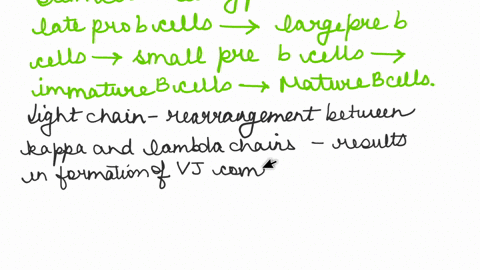 late pro b cells → large pre b
cells → small pre b cells →
immature B cells → Mature B cells.
Light chain - rearrangement between
kappa and lambda chains - results
in formation of VJ com